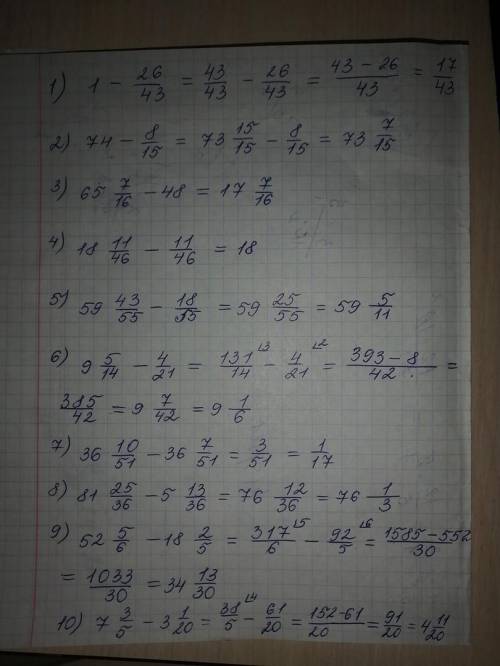 1) 1 - 26/43 = 43/43 - 26/43 = (43 - 26)/43 = 17/43
2) 74 - 8/15 = 73 15/15 - 8/15 = 73 7/15
3) 65 7/16 - 48 = 17 7/16
4) 18 11/46 - 11/46 = 18
5) 59 43/55 - 18/55 = 59 25/55 = 59 5/11
6) 9 5/14 - 4/21 = 131/14 ⌊3 - 4/21 ⌊2 = (393 - 8)/42 =
385/42 = 9 7/42 = 9 1/6
7) 36 10/51 - 36 7/51 = 3/51 = 1/17
8) 81 25/36 - 5 13/36 = 76 12/36 = 76 1/3
9) 52 5/6 - 18 2/5 = 317/6 ⌊5 - 92/5 ⌊6 = (1585 - 552)/30
= 1033/30 = 34 13/30
10) 7 3/5 - 3 1/20 = 38/5 ⌊4 - 61/20 = (152 - 61)/20 = 91/20 = 4 11/20